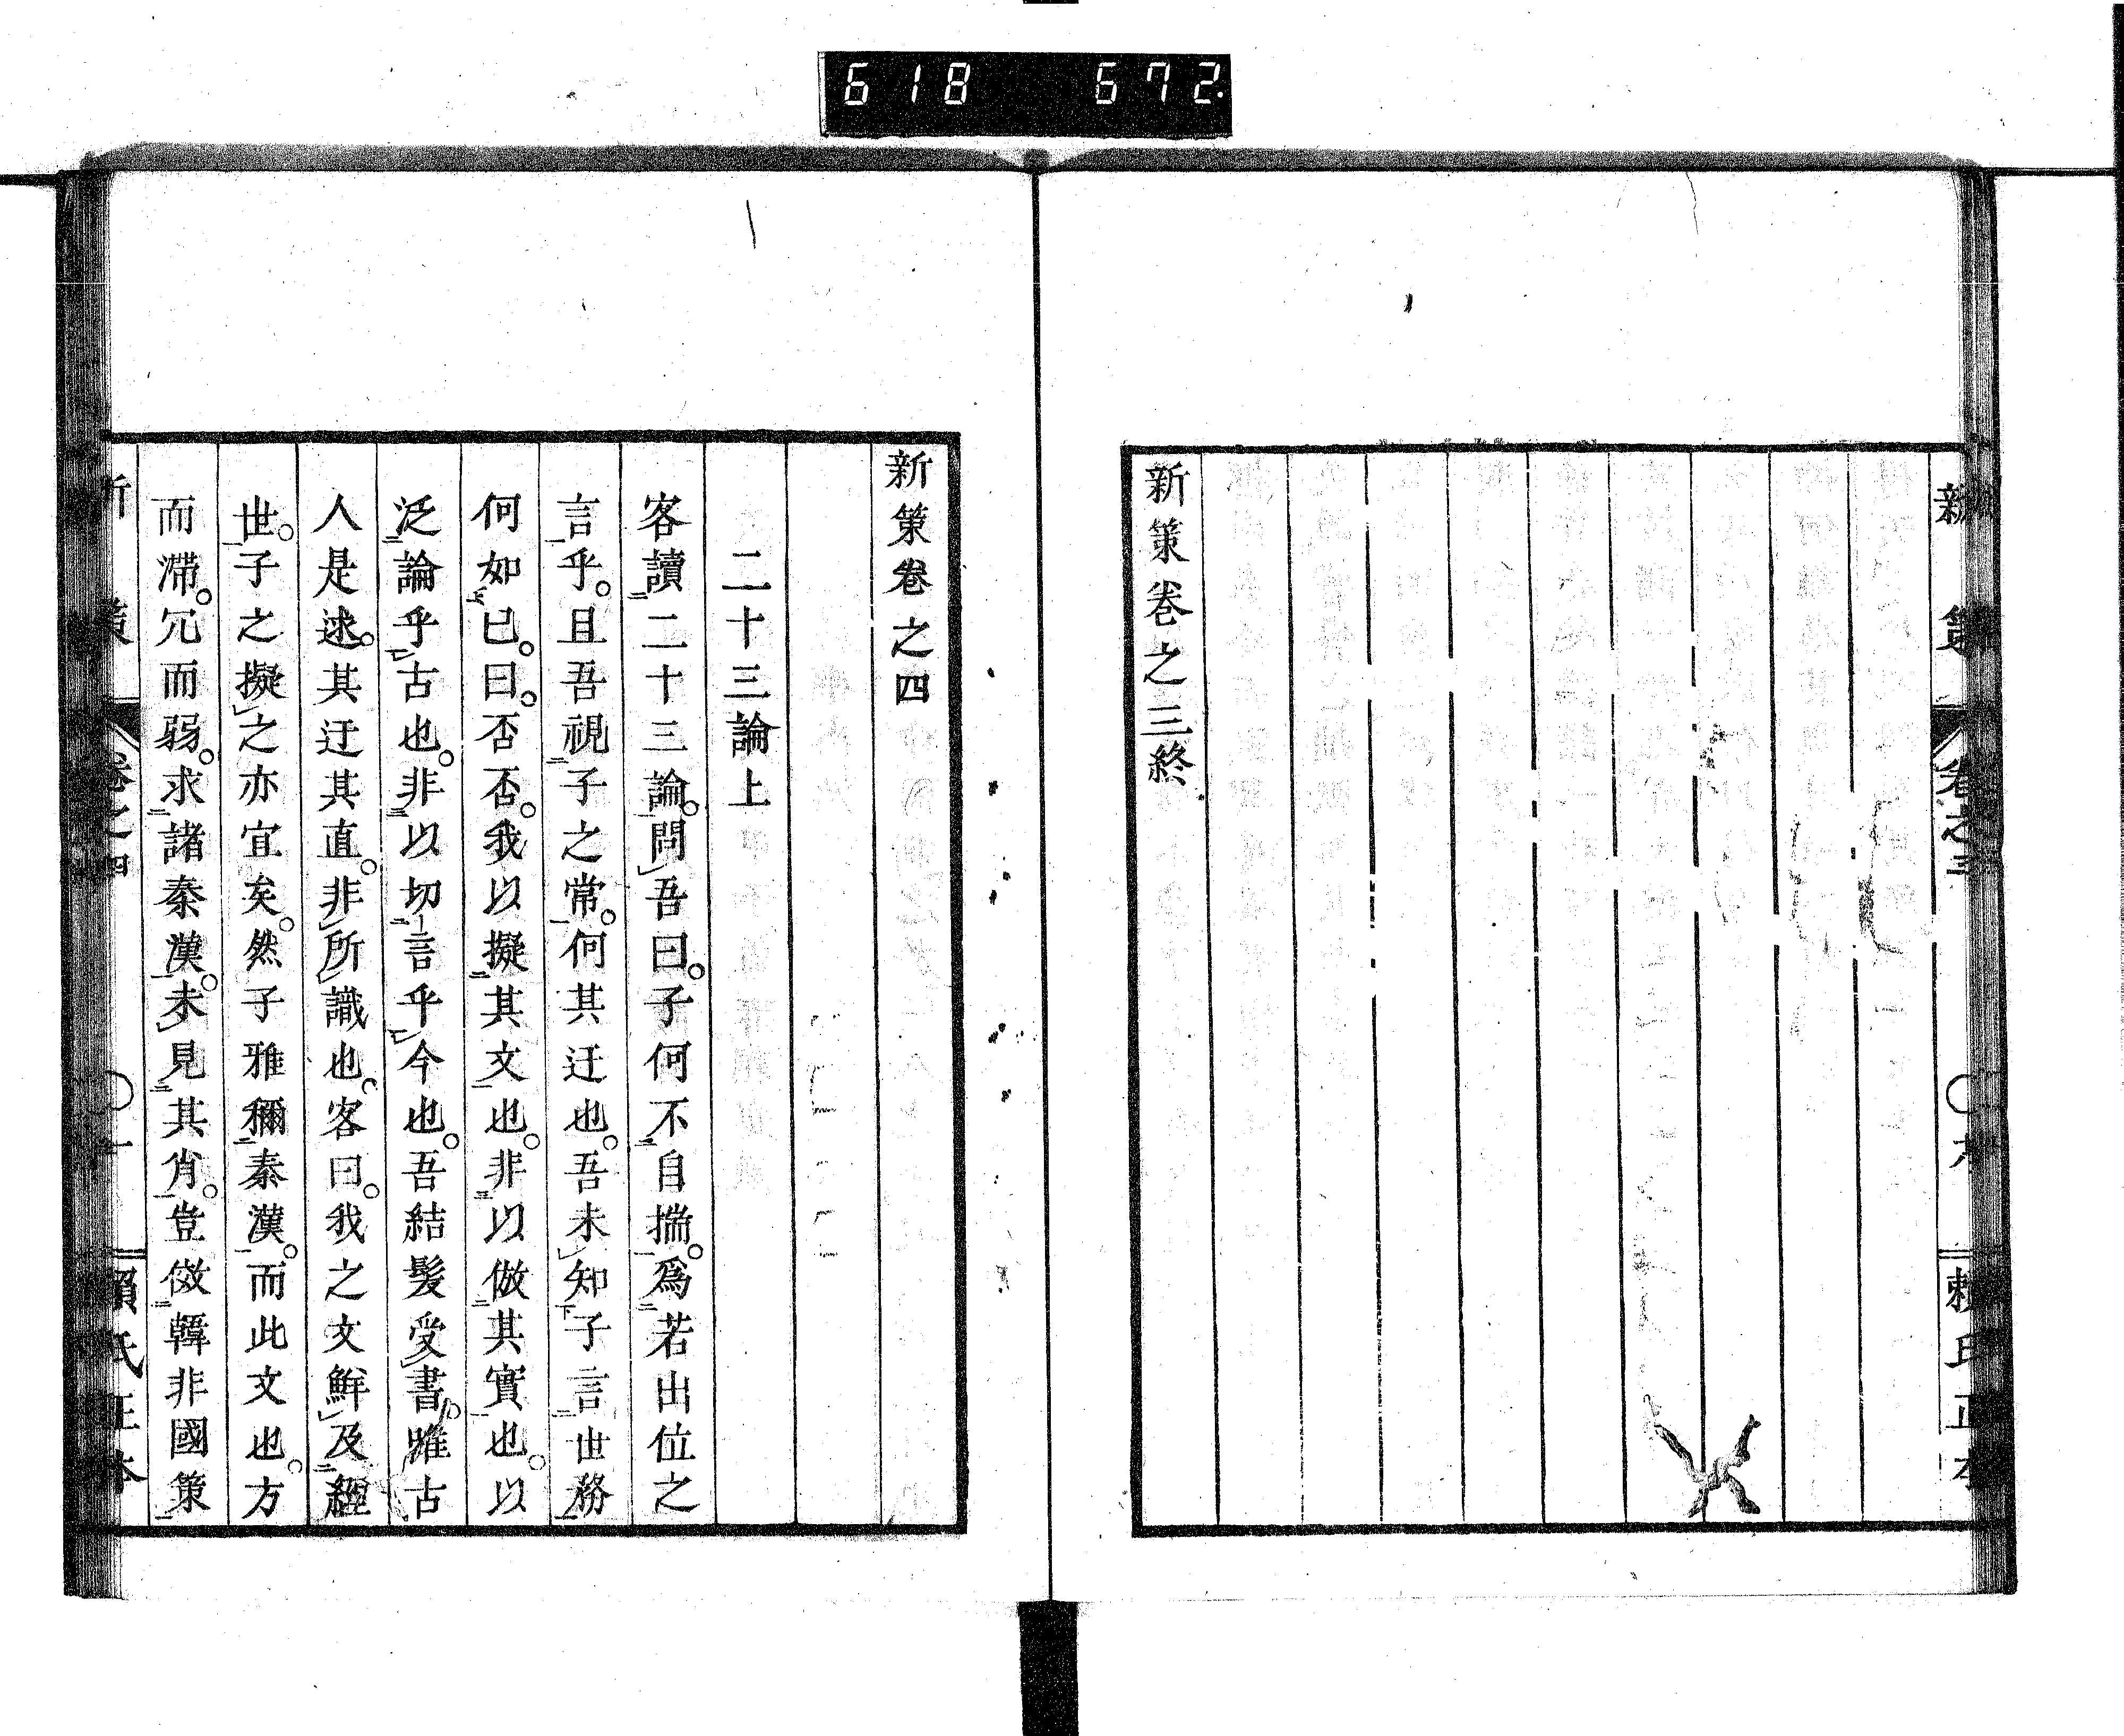 618 672
新策 卷之三 〇六 賴氏正本
新策卷之三終
新策卷之四
二十三論上
客讀二十三論。問吾曰。子何不自揣。爲若出位之
言乎。且吾視子之常。何其迂也。吾未知子言世務
何如已。曰。否否。我以擬其文也。非以倣其實也。以
泛論乎古也。非以切言乎今也。吾結髮受書。唯古
人是逑。其迂其直。非所識也。客曰。我之文鮮及經
世。子之擬之亦宜矣。然子雅稱秦漢。而此文也。方
而滯。冗而弱。求諸秦漢。未見其肖。豈傚韓非國策
新策 卷之四 〇一 賴氏正本